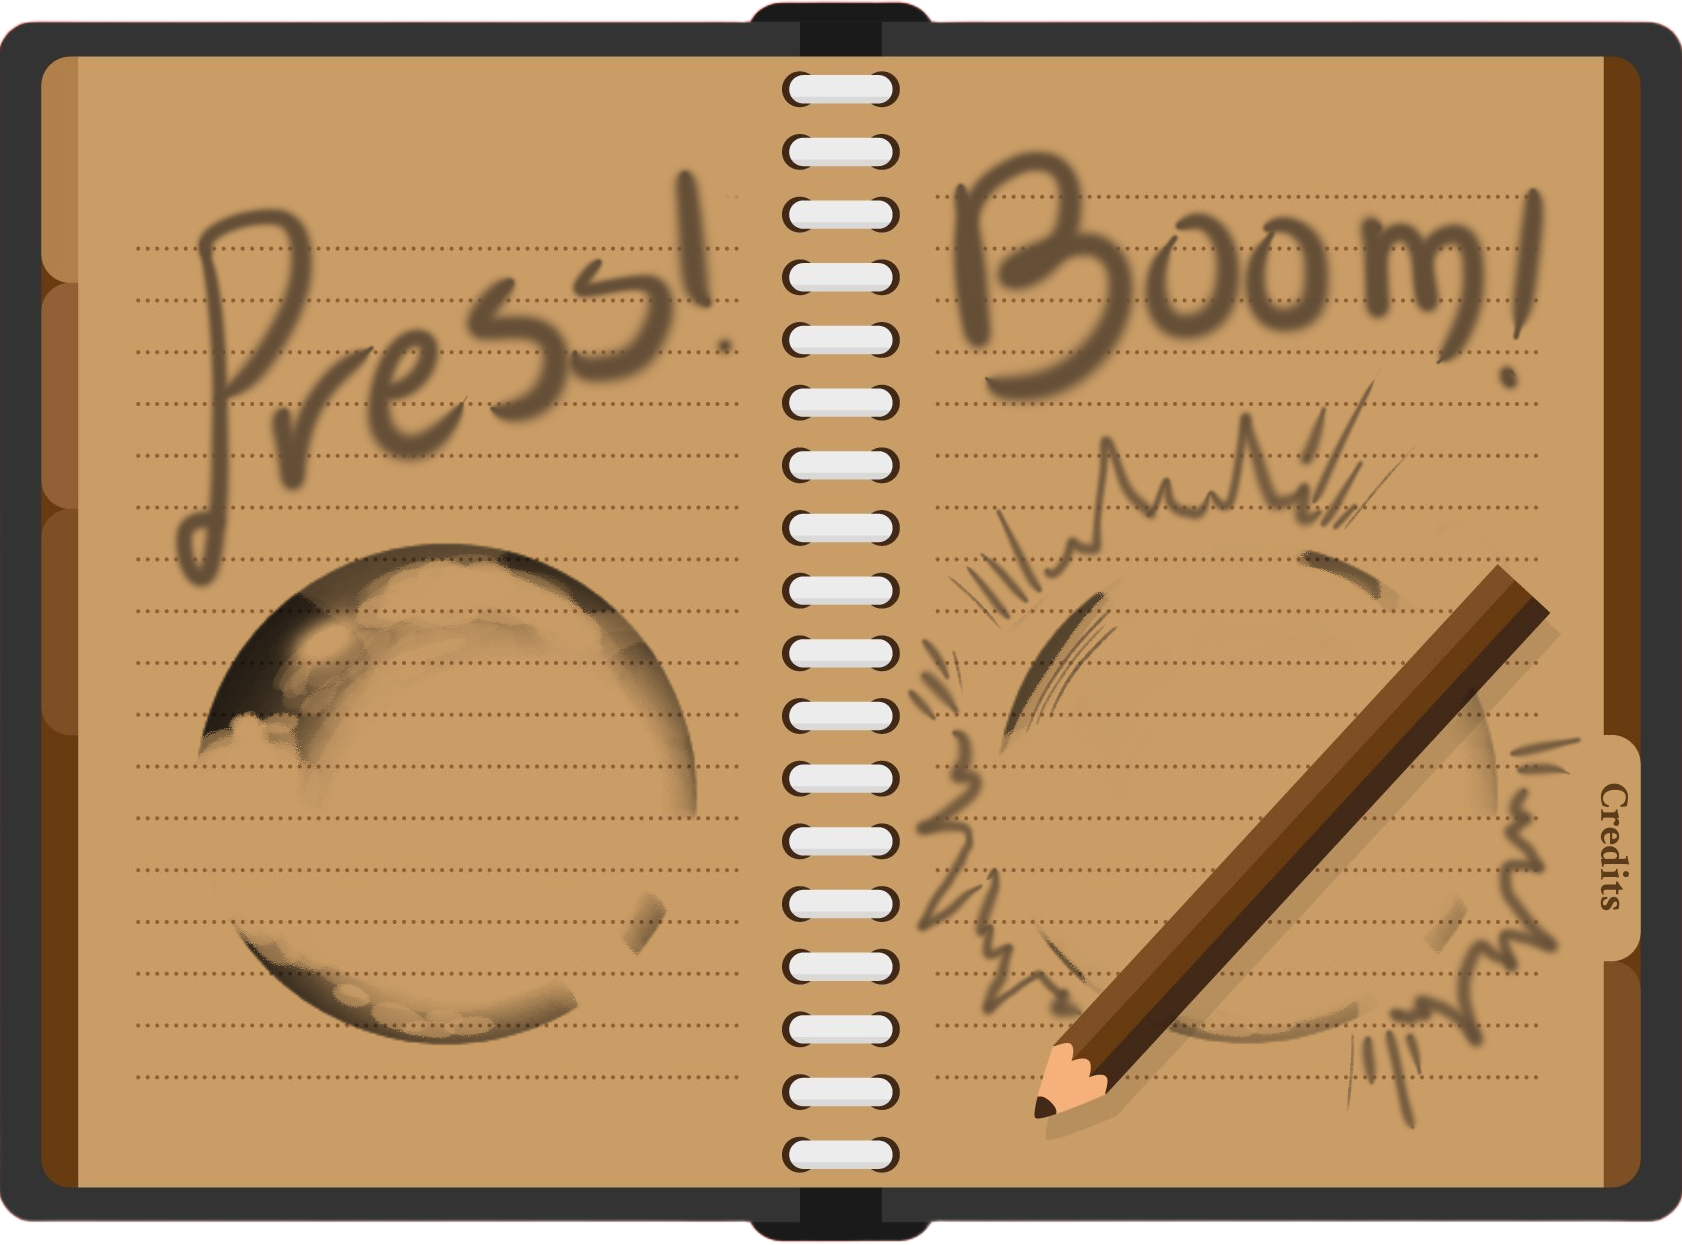 Press!
Boom!
Credits